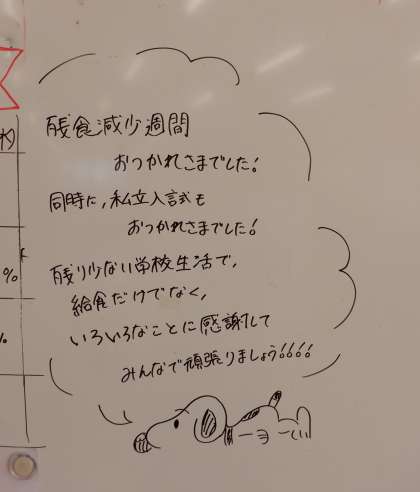 残食減少週間
おつかれさまでした!
同時に,私立入試も
おつかれさまでした!
残り少ない学校生活で,
給食だけでなく,
いろいろなことに感謝して
みんなで頑張りましょう!!!!
%
%